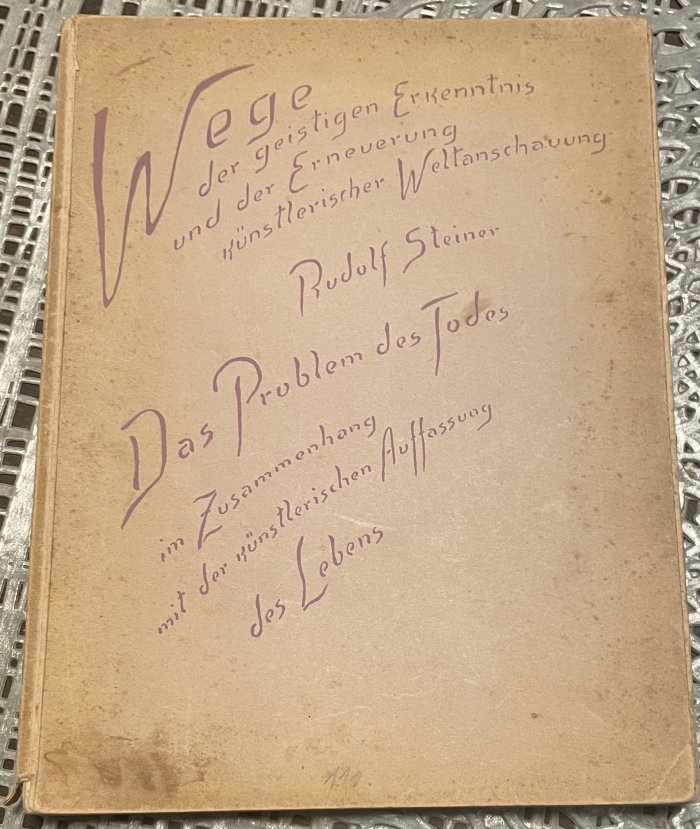 Wege
der geistigen Erkenntnis
und der Erneuerung
künstlerischer Weltanschauung
Rudolf Steiner
Das Problem des Todes
im Zusammenhang
mit der künstlerischen Auffassung
des Lebens